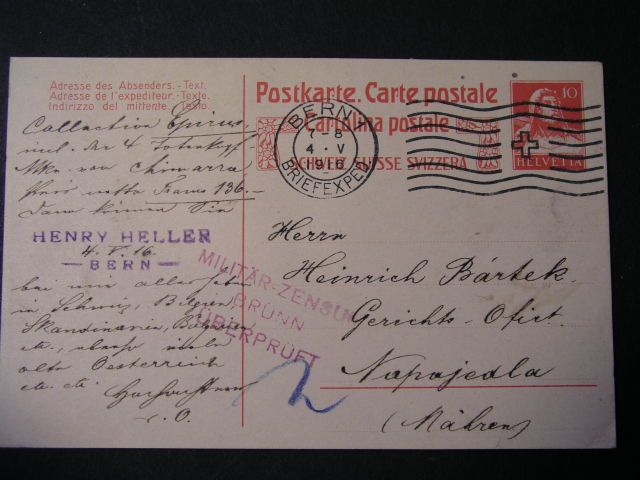 Adresse des Absenders. - Text.
Adresse de l'expéditeur. - Texte.
Indirizzo del mittente. - Testo.
Collection Epirus,
incl. der 4 Totenkopf
Mkn. von Chimarra
Preis netto francs 136.-
Dann können Sie
HENRY HELLER
4. V. 16
BERN
bei uns
in Schweiz, Belgien,
Skandinavien, Bulgarien
etc., ebenso
alte Oesterreich
etc. etc.
Postkarte. Carte postale
Cartolina postale
SCHWEIZ. SUISSE SVIZZERA
BERN
7-8
4. V
1916
BRIEFEXPED.
10
HELVETIA
MILITÄR-ZENSUR
BRÜNN
ÜBERPRÜFT
Herrn
Heinrich Bártek
Gerichts-Ofict.
Napajedla
(Mähren)